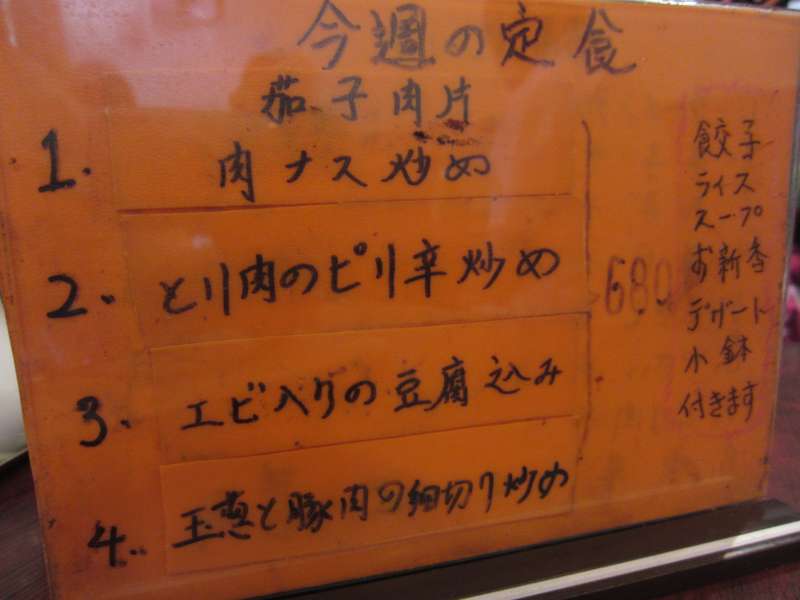 今週の定食
茄子肉片
1. 肉ナス炒め
2. とり肉のピリ辛炒め
3. エビ入りの豆腐込み
4. 玉葱と豚肉の細切り炒め
680
餃子
ライス
スープ
お新香
デザート
小鉢
付きます